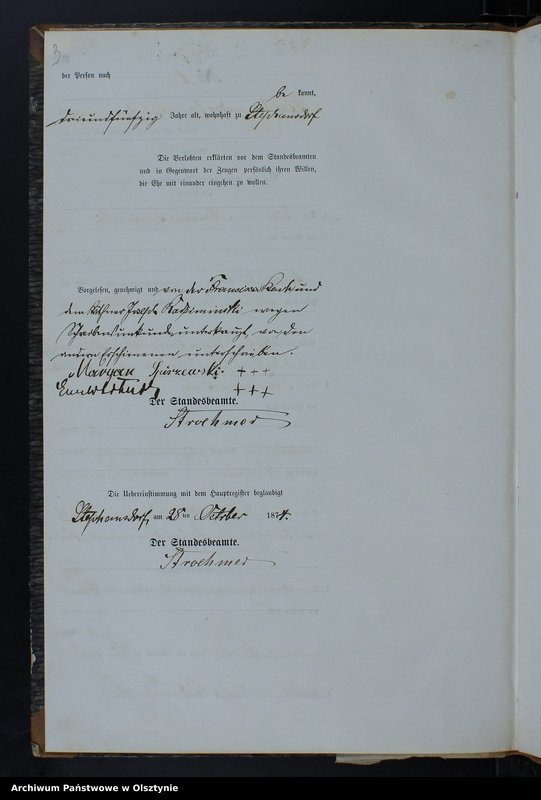 3
der Person nach
be kannt,
dreiundfünfzig Jahre alt, wohnhaft zu Stephansdorf
Die Verlobten erklärten vor dem Standesbeamten
und in Gegenwart der Zeugen persönlich ihren Willen,
die Ehe mit einander eingehen zu wollen.
Vorgelesen, genehmigt und von der Francisca und
dem Käthner Joseph wegen
Schreibensunkunde unterkreuzt, von den
andern Erschienenen unterschrieben.
Maryan + + +
+ + +
Der Standesbeamte.
Stroehmer
Die Uebereinstimmung mit dem Hauptregister beglaubigt
Stephansdorf, am 28 ten October 1874.
Der Standesbeamte.
Stroehmer
Archiwum Państwowe w Olsztynie